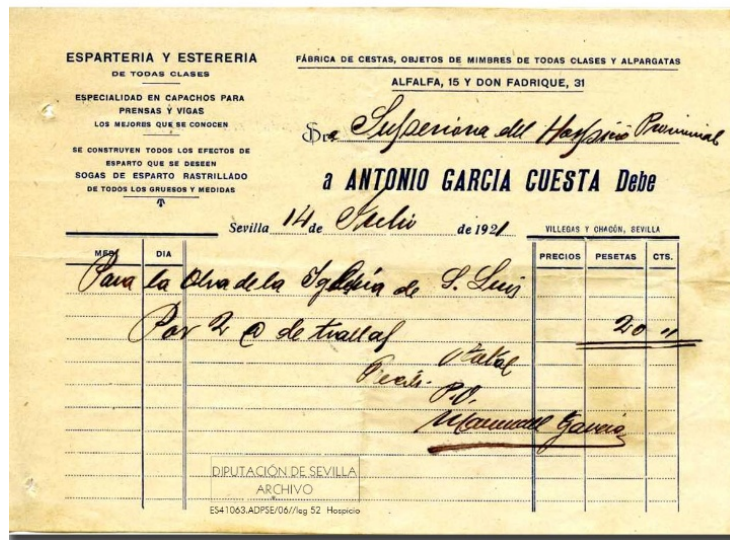 ESPARTERIA Y ESTERERIA
DE TODAS CLASES
ESPECIALIDAD EN CAPACHOS PARA
PRENSAS Y VIGAS
LOS MEJORES QUE SE CONOCEN
SE CONSTRUYEN TODOS LOS EFECTOS DE
ESPARTO QUE SE DESEEN
SOGAS DE ESPARTO RASTRILLADO
DE TODOS LOS GRUESOS Y MEDIDAS
FÁBRICA DE CESTAS, OBJETOS DE MIMBRES DE TODAS CLASES Y ALPARGATAS
ALFALFA, 15 Y DON FADRIQUE, 31
Sra Superiora del Hospicio Provincial
a ANTONIO GARCIA CUESTA Debe
Sevilla 14 de Julio de 1921
VILLEGAS Y CHACÓN, SEVILLA
MES DIA PRECIOS PESETAS CTS.
Para la Obra de la Iglesia de S. Luis
Por 2 @ de 20 "
Recibí
P.O.
Manuel Garcia
DIPUTACIÓN DE SEVILLA
ARCHIVO
ES41063.ADPSE/06//leg 52 Hospicio